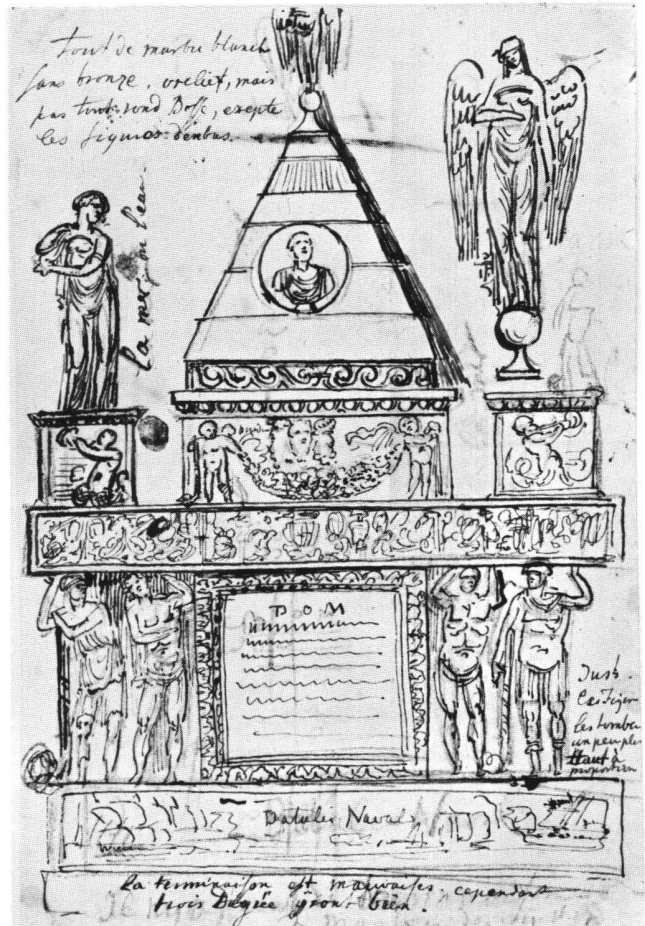 tout de marbre blanch
sans bronze, orelief, mais
pas tout rond Bosse, exepte
les figures denbas.
la mer ou leau.
D O M
Batalie Navale
Les figur
les tombe
un peu plus
Haut a
proportion
la terminaison est mauvaises. cependant
trois Degrée yront bien.